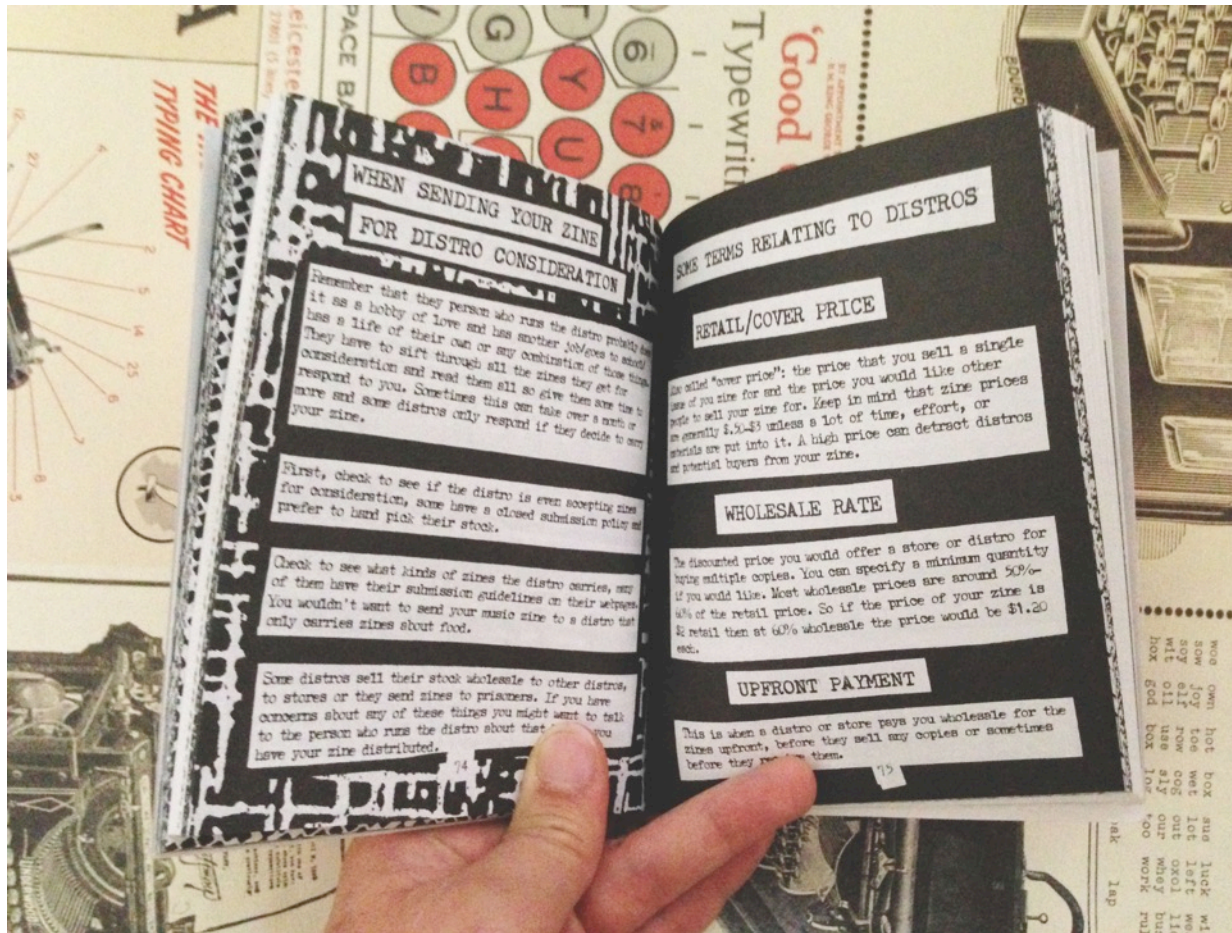 WHEN SENDING YOUR ZINE
FOR DISTRO CONSIDERATION
Remember that they person who runs the distro probably does
it as a hobby of love and has another job/goes to school/
has a life of their own or any combination of those things.
They have to sift through all the zines they get for
consideration and read them all so give them some time to
respond to you. Sometimes this can take over a month or
more and some distros only respond if they decide to carry
your zine.
First, check to see if the distro is even accepting zines
for consideration, some have a closed submission policy and
prefer to hand pick their stock.
Check to see what kinds of zines the distro carries, many
of them have their submission guidelines on their webpages.
You wouldn't want to send your music zine to a distro that
only carries zines about food.
Some distros sell their stock wholesale to other distros,
to stores or they send zines to prisoners. If you have
concerns about any of these things you might want to talk
to the person who runs the distro about that you
have your zine distributed.
74
SOME TERMS RELATING TO DISTROS
RETAIL/COVER PRICE
Also called "cover price": the price that you sell a single
issue of you zine for and the price you would like other
people to sell your zine for. Keep in mind that zine prices
are generally $.50-$3 unless a lot of time, effort, or
materials are put into it. A high price can detract distros
and potential buyers from your zine.
WHOLESALE RATE
The discounted price you would offer a store or distro for
buying multiple copies. You can specify a minimum quantity
if you would like. Most wholesale prices are around 50%-
60% of the retail price. So if the price of your zine is
$2 retail then at 60% wholesale the price would be $1.20
each.
UPFRONT PAYMENT
This is when a distro or store pays you wholesale for the
zines upfront, before they sell any copies or sometimes
before they them.
75
THE
TYPING CHART
eicester
PACE BA
G
6
B
H
Y
&
7
U
8
'Good
Typewriti
woe own hot box sus luck
sow joy toe wet lot left
soy elf row cog out oxol
wit oil use sly our whey
hox god box too work
lap
27
4
2
5
14
25
6
7